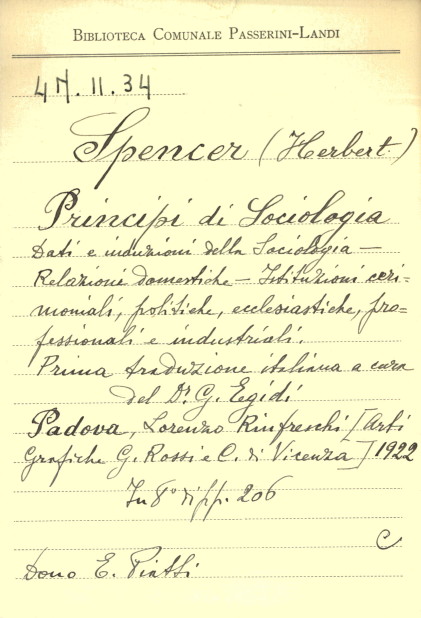 BIBLIOTECA COMUNALE PASSERINI-LANDI
4N.11.34
Spencer (Herbert)
Principi di Sociologia
Dati e induzioni della Sociologia —
Relazione domestiche — Istituzioni ceri=
moniali, politiche, ecclesiastiche, pro=
fessionali e industriali.
Prima traduzione italiana a cura
del Dr. G. Egidi
Padova, Lorenzo Rinfreschi [Arti
Grafiche G. Rossi e C. di Vicenza] 1922
In 8° di pp. 206
C
Dono E. Piatti